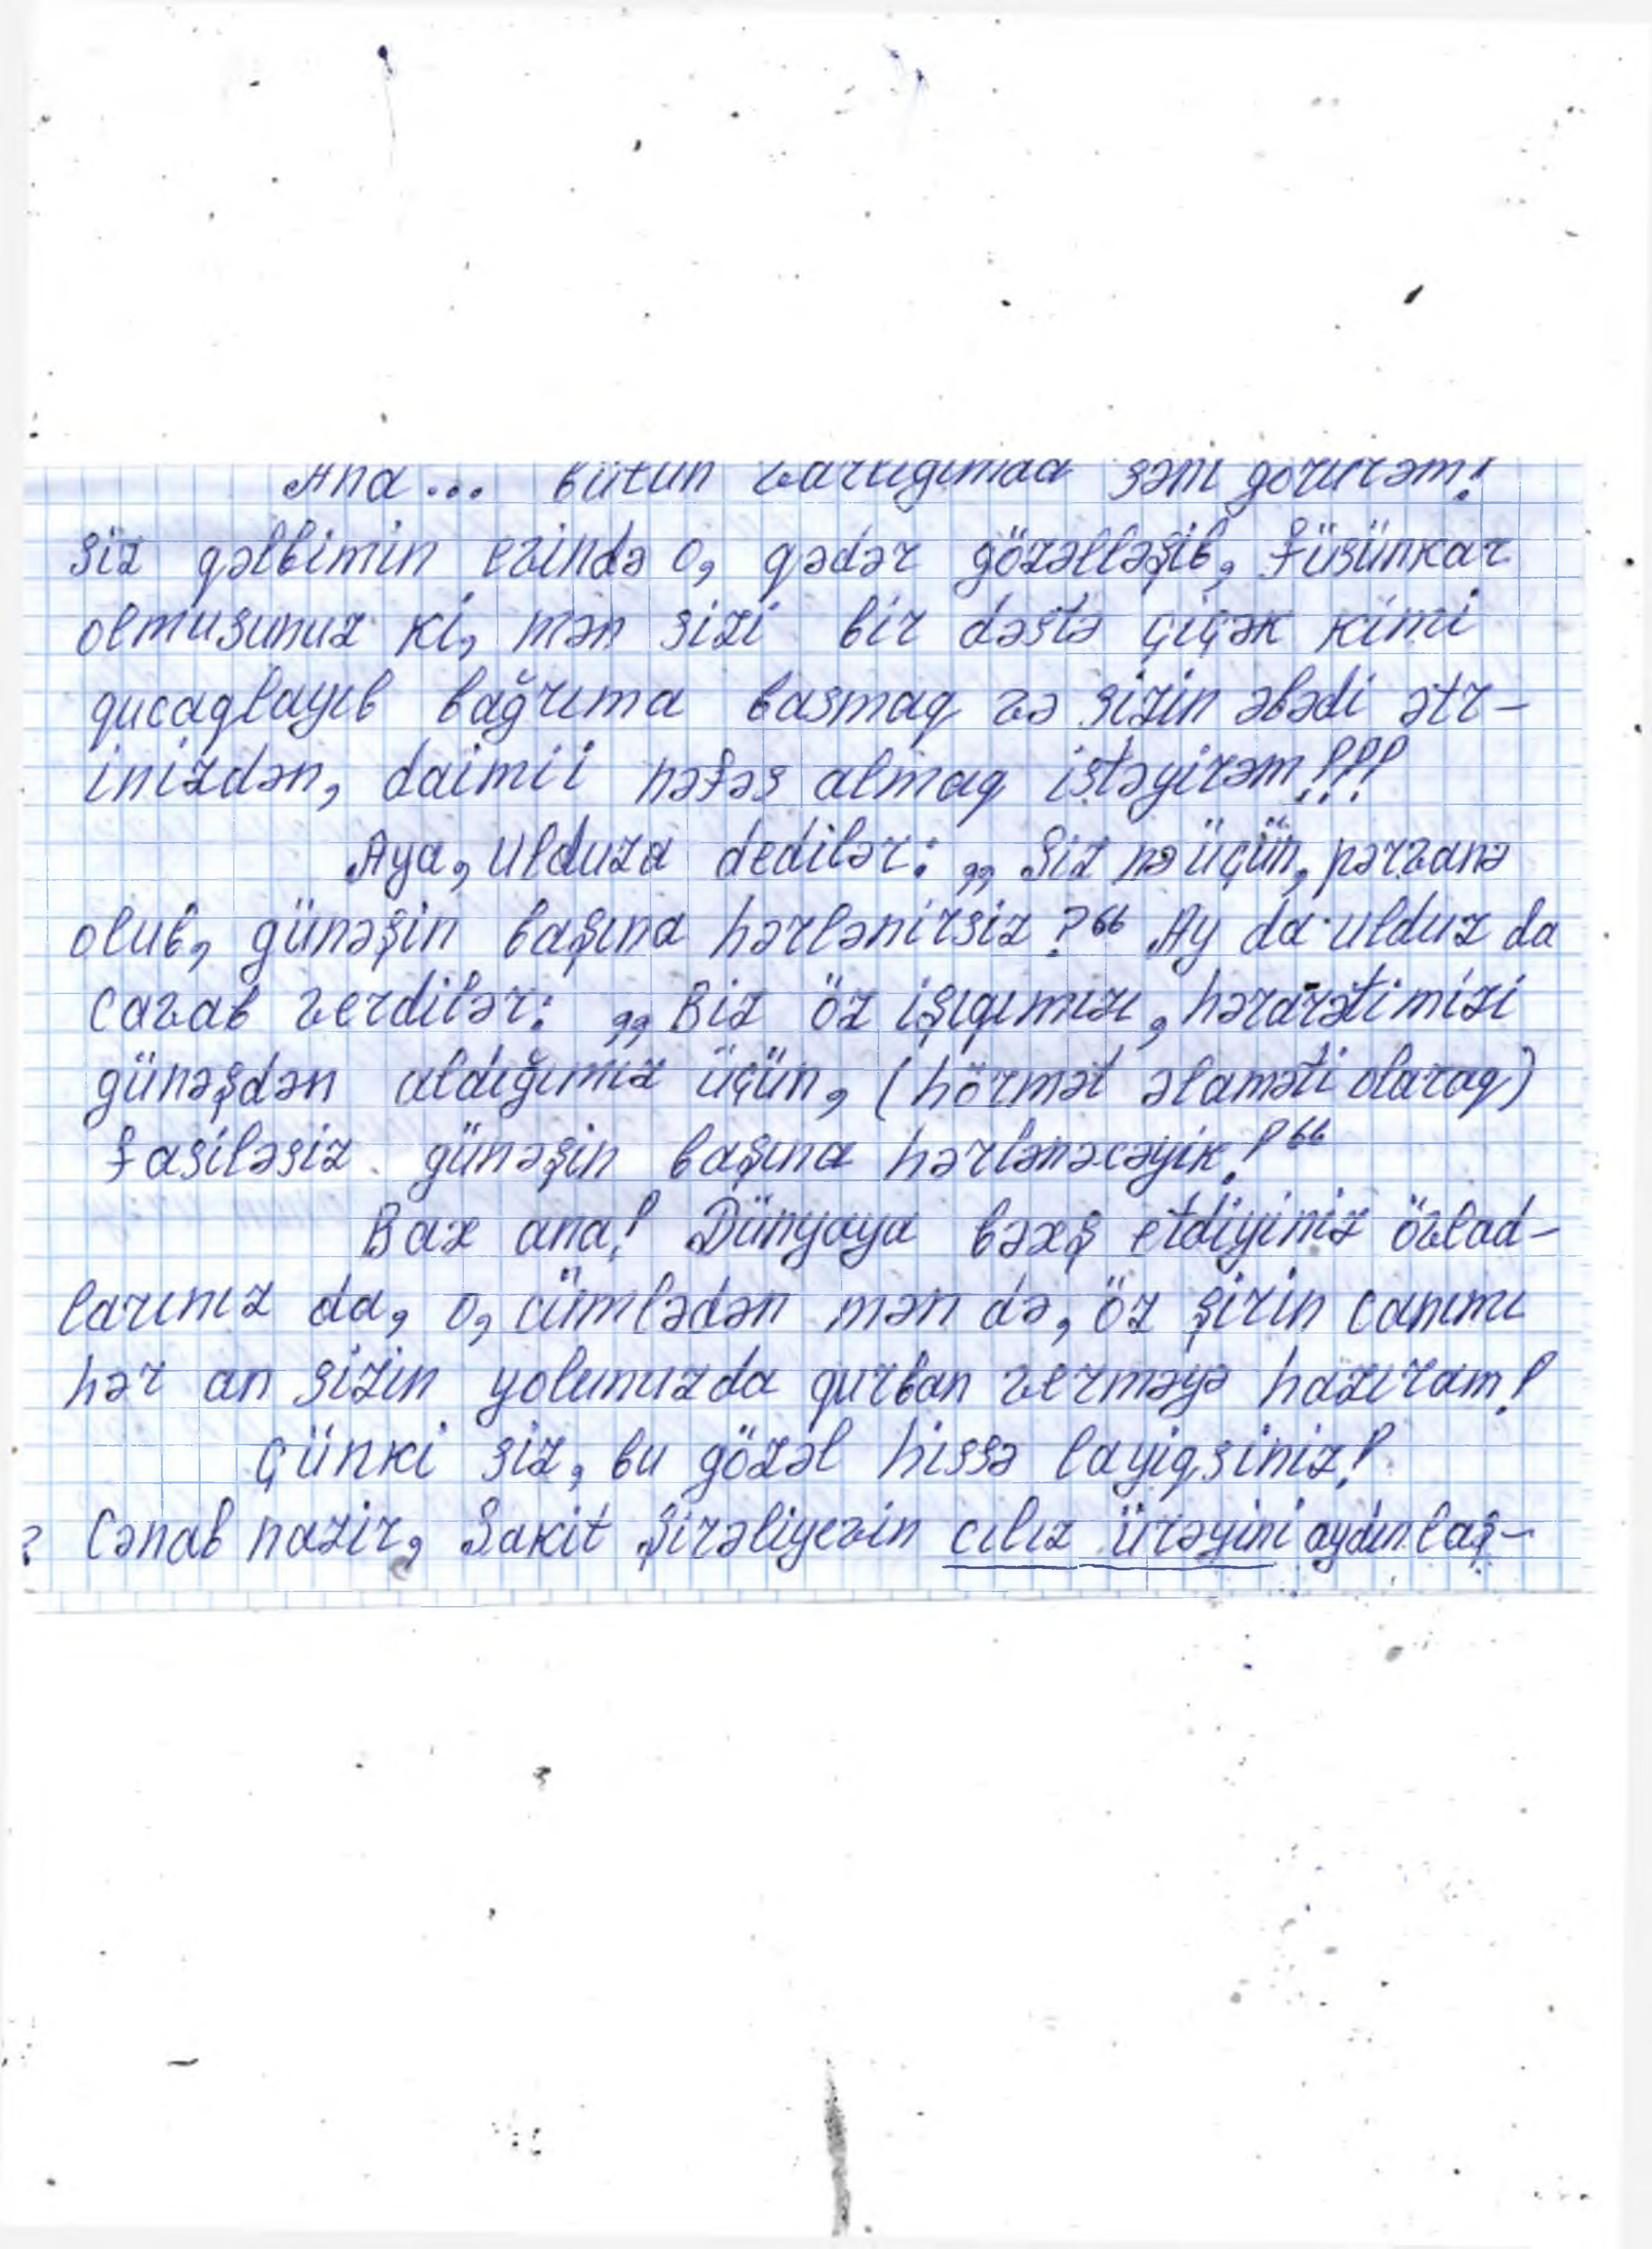 Ana... bütün varlığımda səni görürəm!
Siz qəlbimin evində o, qədər gözəlləşib, füsünkar
olmusunuz ki, mən sizi bir dəstə çiçək kimi
qucaqlayıb bağrıma basmaq və sizin əbədi ətr-
inizdən, daimii nəfəs almaq istəyirəm!!!
Aya, Ulduza dedilər: „Siz nə üçün, pərvanə
olub, günəşin başına hərlənirsiz?“ Ay da ulduz da
Cavab verdilər: „Biz öz işıqımızı, hərarətimizi
günəşdən aldığımız üçün, (hörmət əlaməti olaraq)
fasiləsiz günəşin başına hərlənəcəyik!“
Bax ana! Dünyaya bəxş etdiyiniz övlad-
larınız da, o, cümlədən mən də, öz şirin canımı
hər an sizin yolunuzda qurban verməyə hazıram!
Çünki siz, bu gözəl hissə layiqsiniz!
Cənab nazir, Sakit Şirəliyevin cılız ürəyini aydınlaş-